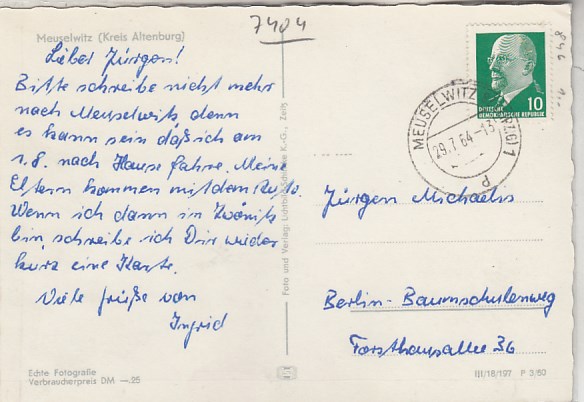 7404
Meuselwitz (Kreis Altenburg)
Lieber Jürgen!
Bitte schreibe nicht mehr
nach Meuselwitz, denn
es kann sein daß ich am
1.8. nach Hause fahre. Meine
Eltern kommen mit dem Auto.
Wenn ich dann in Zwönitz
bin, schreibe ich Dir wieder
kurz eine Karte.
Viele Grüße von
Ingrid
Echte Fotografie
Verbraucherpreis DM —.25
Foto und Verlag: K.-G., Zeitz
10
DEUTSCHE
DEMOKRATISCHE REPUBLIK
MEUSELWITZ 1
29.7.64-13
P
Jürgen Michaelis
Berlin-Baumschulenweg
Forsthausallee 36
III/18/197 P 3/60